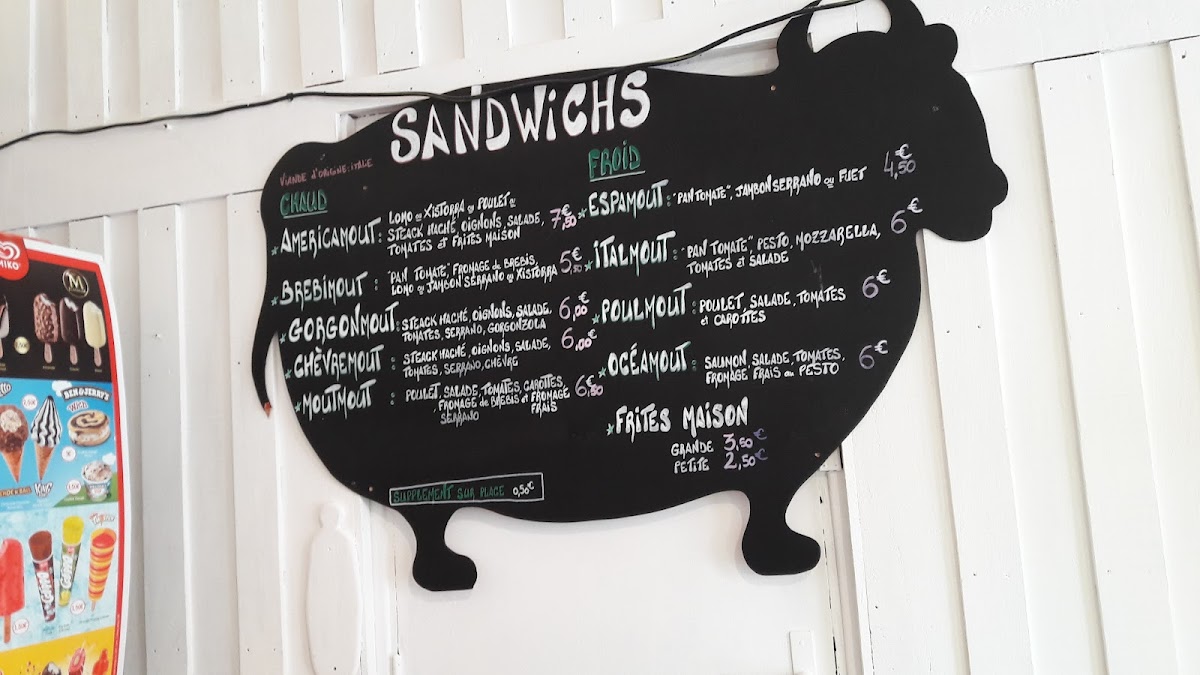 SANDWiCHS
VIANDE d'ORIGNE: iTALE
CHAUD
* AMERICAMOUT : LOMO ou XISTORRA ou POULET ou
STEACK HACHÉ, OIGNONS, SALADE,
TOMATES et FRITES MAISON 7,50€
* BREBIMOUT : "PAN TOMATE" FROMAGE de BREBIS,
LOMO ou JAMBON SERRANO ou XISTORRA 5,50€
* GORGONMOUT : STEACK HACHÉ, OIGNONS, SALADE,
TOMATES, SERRANO, GORGONZOLA 6,00€
* CHÈVREMOUT : STEACK HACHÉ, OIGNONS, SALADE,
TOMATES, SERRANO, CHÈVRE 6,00€
* MOUTMOUT : POULET, SALADE, TOMATES, CAROTTES,
FROMAGE de BREBIS et FROMAGE
SERRANO FRAIS 6,50€
SUPPLEMENT SUR PLACE 0,50€
FROID
* ESPAMOUT : "PAN TOMATE", JAMBON SERRANO ou FUET 4,50€
* iTALMOUT : "PAN TOMATE", PESTO, MOZZARELLA,
TOMATES et SALADE 6€
* POULMOUT : POULET, SALADE, TOMATES
et CAROTTES 6€
* OCÉAMOUT : SAUMON, SALADE, TOMATES,
FROMAGE FRAIS ou PESTO 6€
* FRITES MAISON
GRANDE 3,50€
PETITE 2,50€
MIKO
M
BEN & JERRY'S